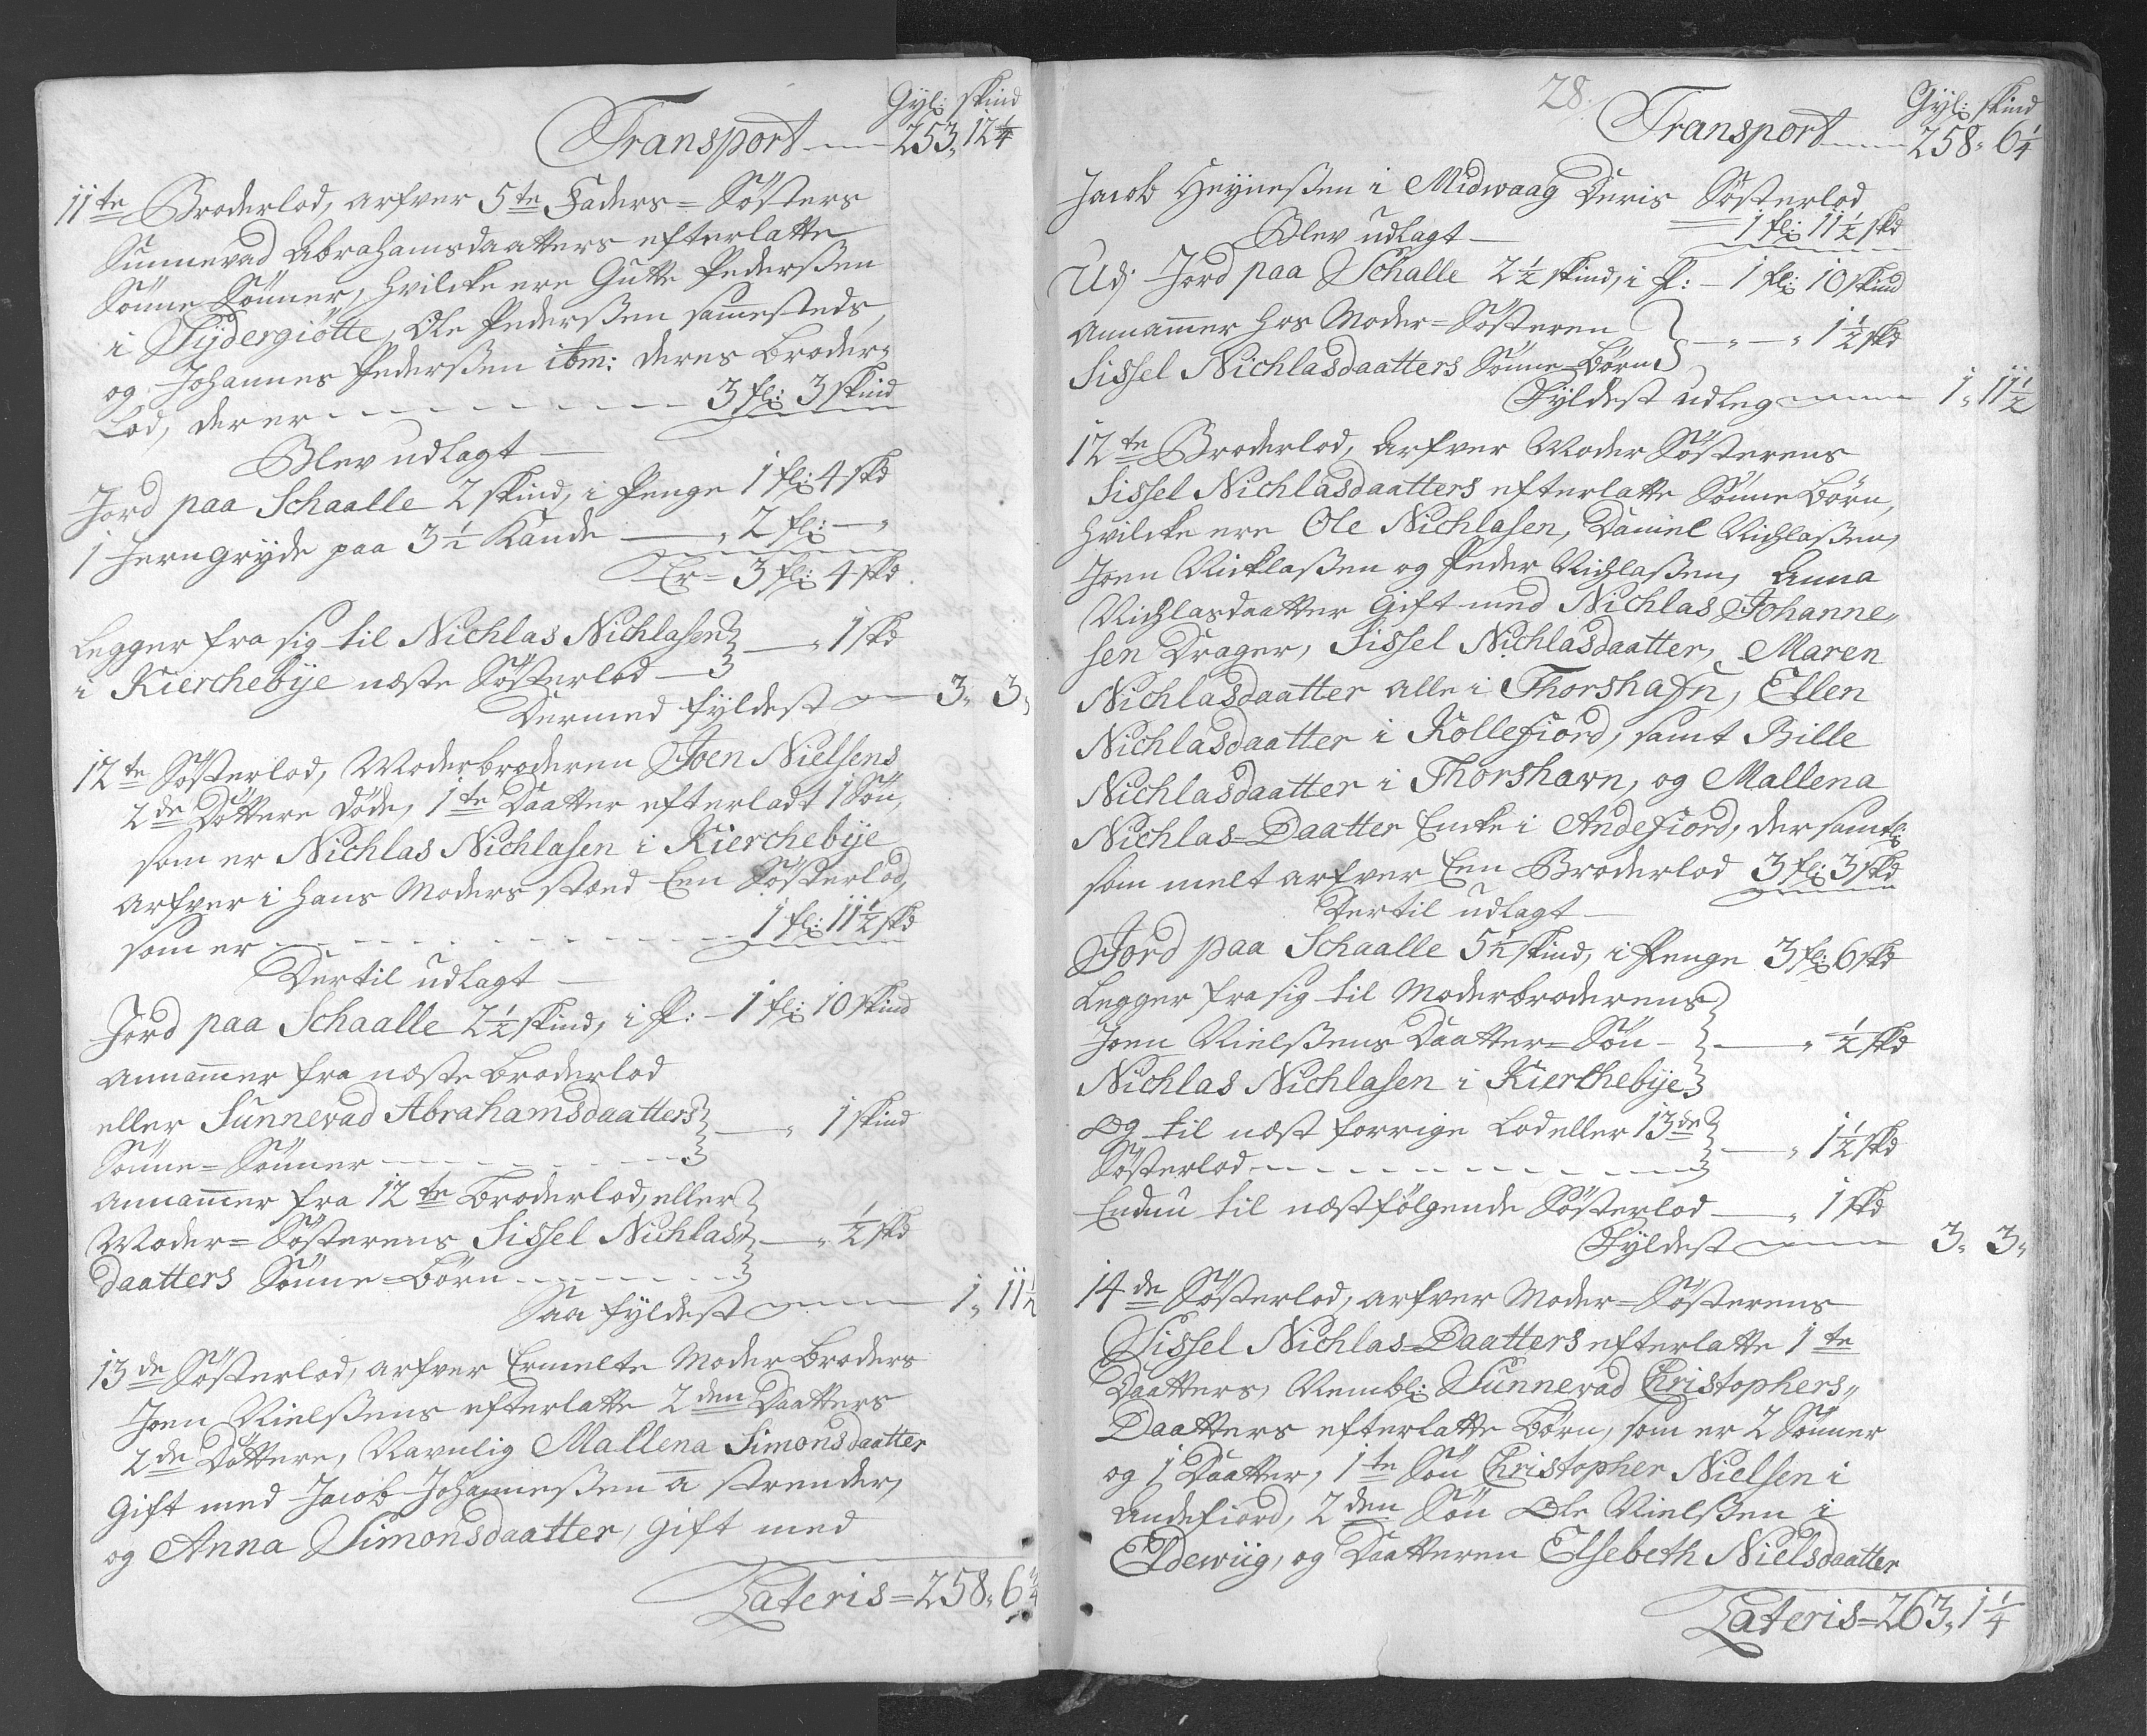 Gyl: skind
Transport 253, 12 1/4
11te Broderlod, arfver 5te Faders=Søsters
Sunnevad Abrahamsdaatters efterlatte
Sønne Sønner, hvilcke ere Gutte Pederssen
i Sydergiötte, Ole Pederssen samesteds,
og Johannes Pederssen ibm: deres broder-
Lod, der er 3 fl: 3 skind
Blev udlagt
Jord paa Schaalle 2 skind, i Penge 1 fl: 4 skd
1 Jerngryde paa 3 1/2 Kande " 2 fl: — "
Er= 3 fl: 4 skd.
Legger fra sig til Nichlas Nichlasen
i Kierchebÿe næste Søsterlod " 1 skd
Dermed fyldest 3, 3,
12te Søsterlod, Moderbroderen Joen Nielsens
2de Døttere døde, 1te Daatter efterladt 1 Søn,
som er Nichlas Nichlasen i Kierchebÿe
arfver i hans Moders sted Een Søsterlod,
som er 1 fl: 11 1/2 skd
Dertil udlagt
Jord paa Schaalle 2 1/2 skind, i P: 1 fl: 10 skind
annammer fra næste broderlod
eller Sunnevad Abrahamsdaatters " 1 skind
Sønne=Sønner
annammer fra 12te broderlod, eller
Moder=Søsterens Sissel Nichlas " 1/2 skd
daatters Sønne=børn
Saa fyldest 1, 11 1/2
13de Søsterlod, arfver Ermelte Moder broders
Joen Nielssens efterlatte 2den Daatters
2de Døttere, Navnlig Mallena Simonsdaatter
gift med Jacob Johannessen a Strender,
og Anna Simonsdaatter, gift med
Lateris = 258, 6 1/4
28.
Gyl: skind
Transport 258, 6 1/4
Jacob Heynessen i Midwaag Deris Søsterlod
Blev udlagt 1 fl: 11 1/2 skd
Ud: Jord paa Schalle 2 1/2 skind, i P: 1 fl: 10 skind
annammer hos Moder=Søsteren
Sissel Nichlasdaatters Sønne=børn " — " 1 1/2 skd
Fyldest udleg 1, 11 1/2
12te Broderlod, arfver Moder Søsterens
Sissel Nichlasdaatters efterlatte Sønne børn,
hvilcke ere Ole Nichlasen, Daniel Nichlassen,
Joen Nicklassen og Peder Nichlassen, Anna
Nichlasdaatter gift med Nichlas Johanne„
sen Drager, Sissel Nichlasdaatter, Maren
Nichlasdaatter alle i Thorshafn, Ellen
Nichlasdaatter i Kollefiord, samt Bille
Nichlasdaatter i Thorshavn, og Mallena
Nichlas=Daatter Encke i Andefiord, der samtl:
som melt arfver Een Broderlod 3 fl: 3 skd
Dertil udlagt
Jord paa Schaalle 5 1/2 skind, i Penge 3 fl: 6 skd
Legger fra sig til Moderbroderens
Joen Nielssens Daatter=Søn " 1/2 skd
Nichlas Nichlasen i Kierchebÿe
og til næst forrige Lod eller 13de
Søsterlod " 1 1/2 skd
Endnu til næstfølgende Søsterlod " 1 skd
Fyldest 3, 3,
14de Søsterlod, arfver Moder=Søsterens
Sissel Nichlas=Daatters efterlatte 1te
Daatters, Nembl: Sunnevad Christophers„
Daatters efterlatte børn, som er 2 Sønner
og 1 Daatter, 1te Søn Christopher Nielsen i
Andefiord, 2den Søn Ole Nielssen i
Eldewiig, og Daatteren Elsebeth Nielsdaatter
Lateris = 263, 1 1/4